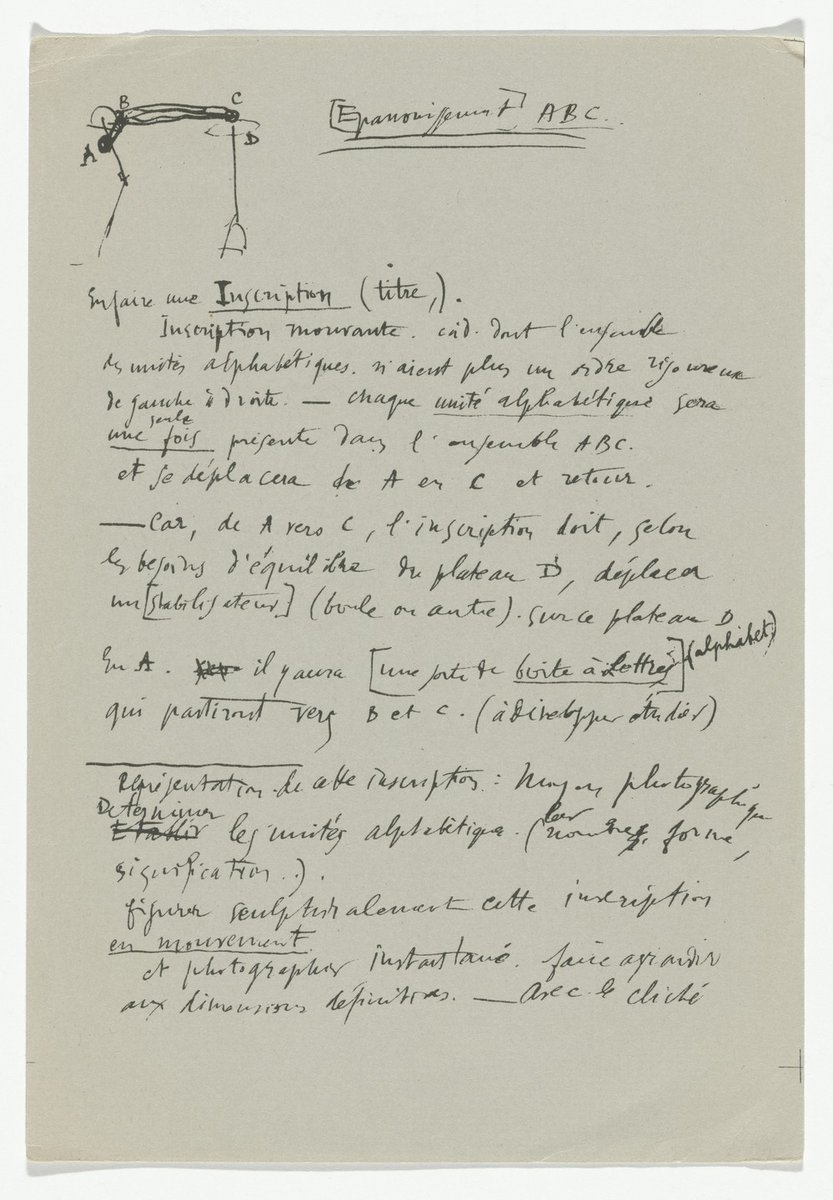 B C
A D
[Epanouissement] ABC.
En faire une Inscription (titre,).
Inscription mouvante. càd. dont l'ensemble
des unités alphabétiques. n'aient plus un ordre rigoureux
de gauche à droite. — chaque unité alphabétique sera
seule
une fois présente dans l'ensemble ABC.
et se déplacera de A en C et retour.
— Car, de A vers C, l'inscription doit, selon
les besoins d'équilibre du plateau D, déplacer
un [stabilisateur] (boule ou autre). sur ce plateau D
En A. il y aura [une sorte de boite à lettres] (alphabet)
qui partiront vers B et C. (à développer étudier)
Représentation de cette inscription : Moyen photographique
Determiner
Etablir les unités alphabétique. (leur nombre, forme,
signification..).
figurer sculpturalement cette inscription
en mouvement.
et photographier instantané. faire agrandir
aux dimensions définitives. — Avec le cliché